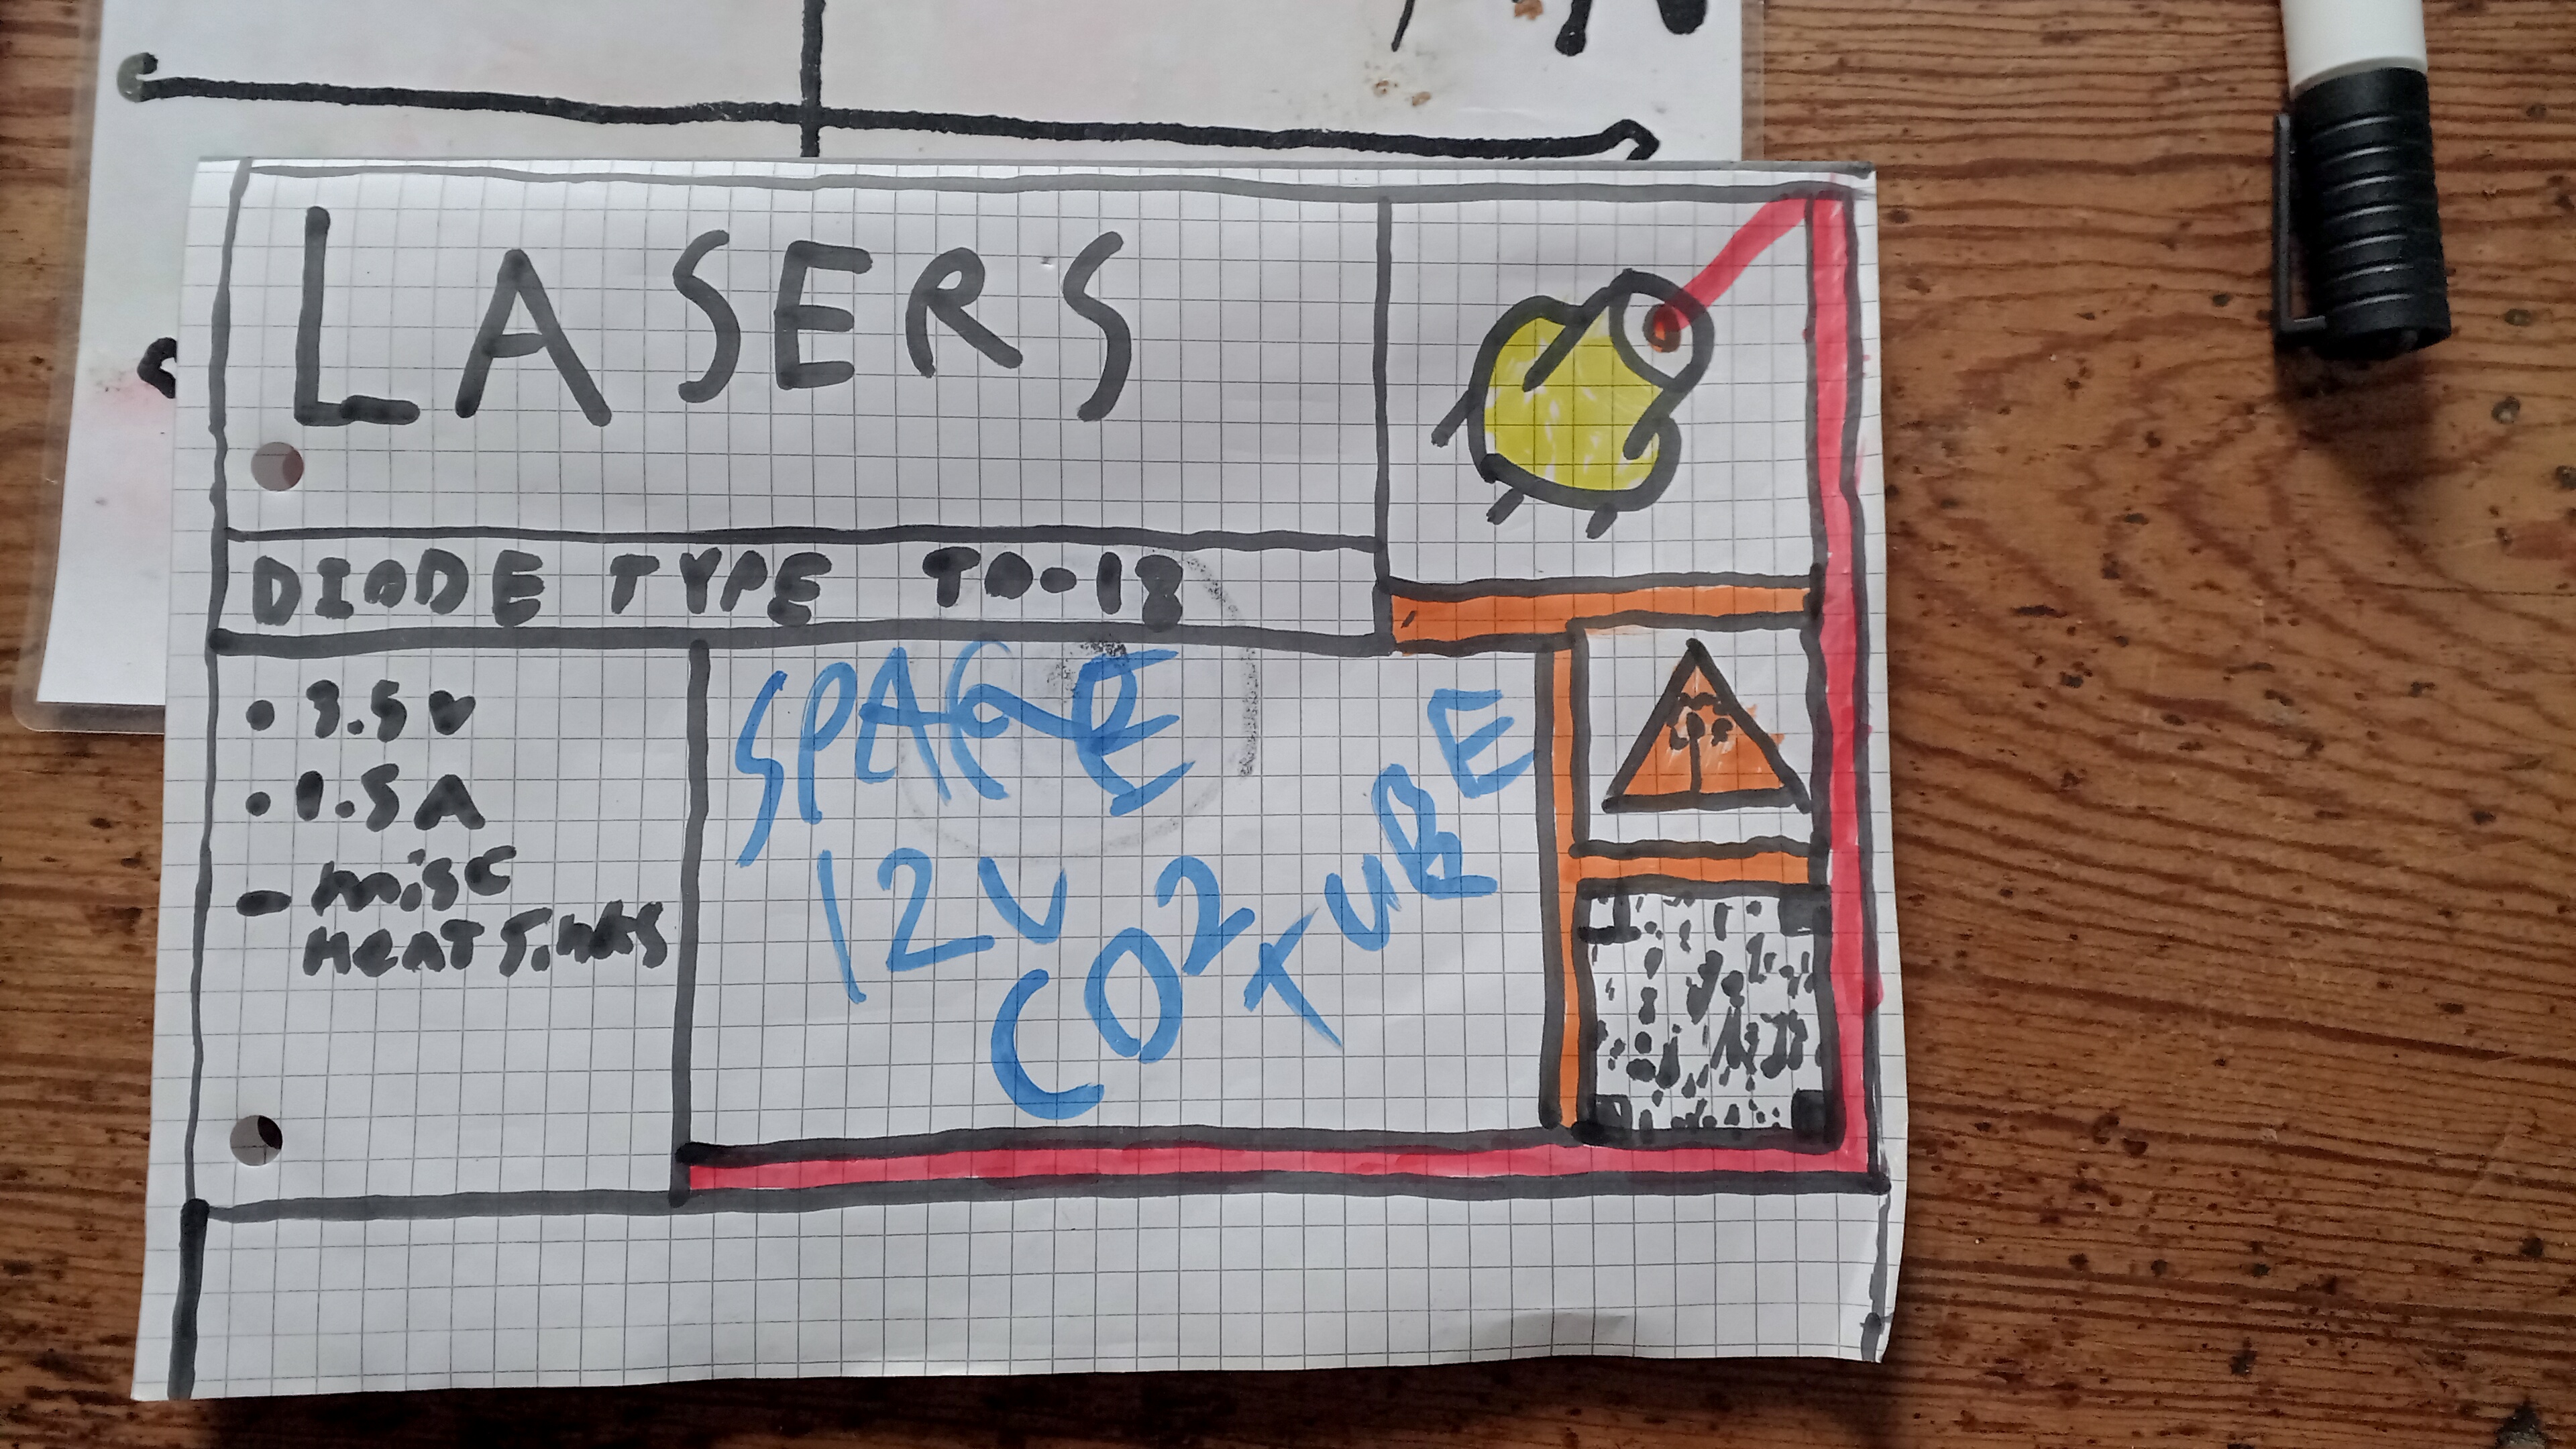 LASERS
DIODE TYPE TO-18
• 3.5V
• 1.5A
– misc
HEAT SinkS
SPARE
12V
CO2
TUBE